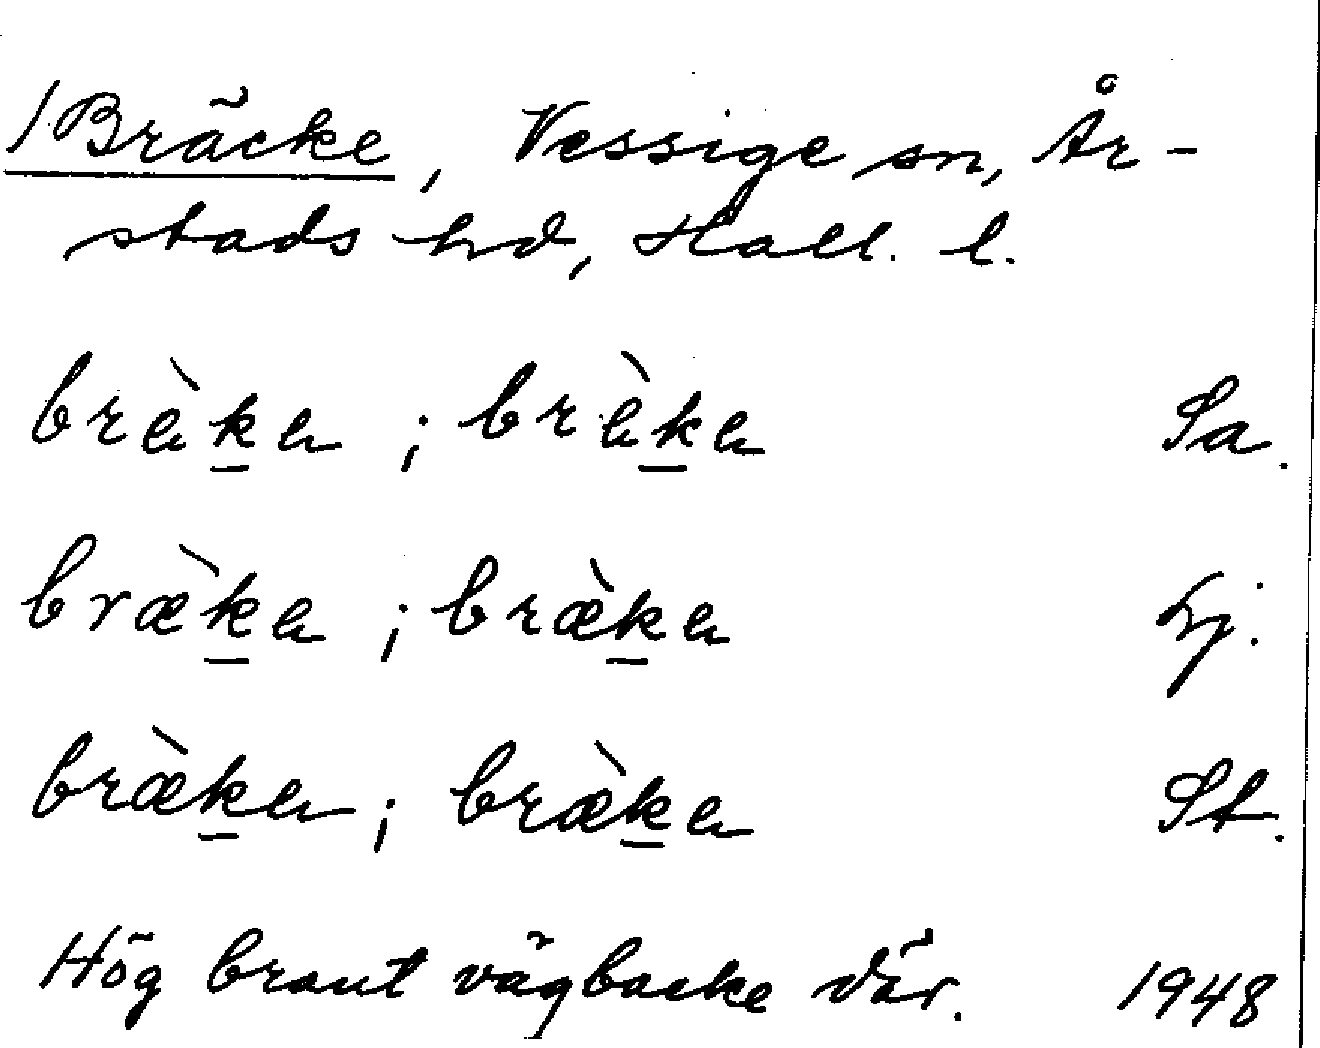 /Bräcke, Vessige sn, År-
stads hd, Hall. l.
brèka ; brèka Sa.
bræ̀ka ; bræ̀ka Lj.
bræ̀ka ; bræ̀ka St.
Hög brant vägbacke där. 1948